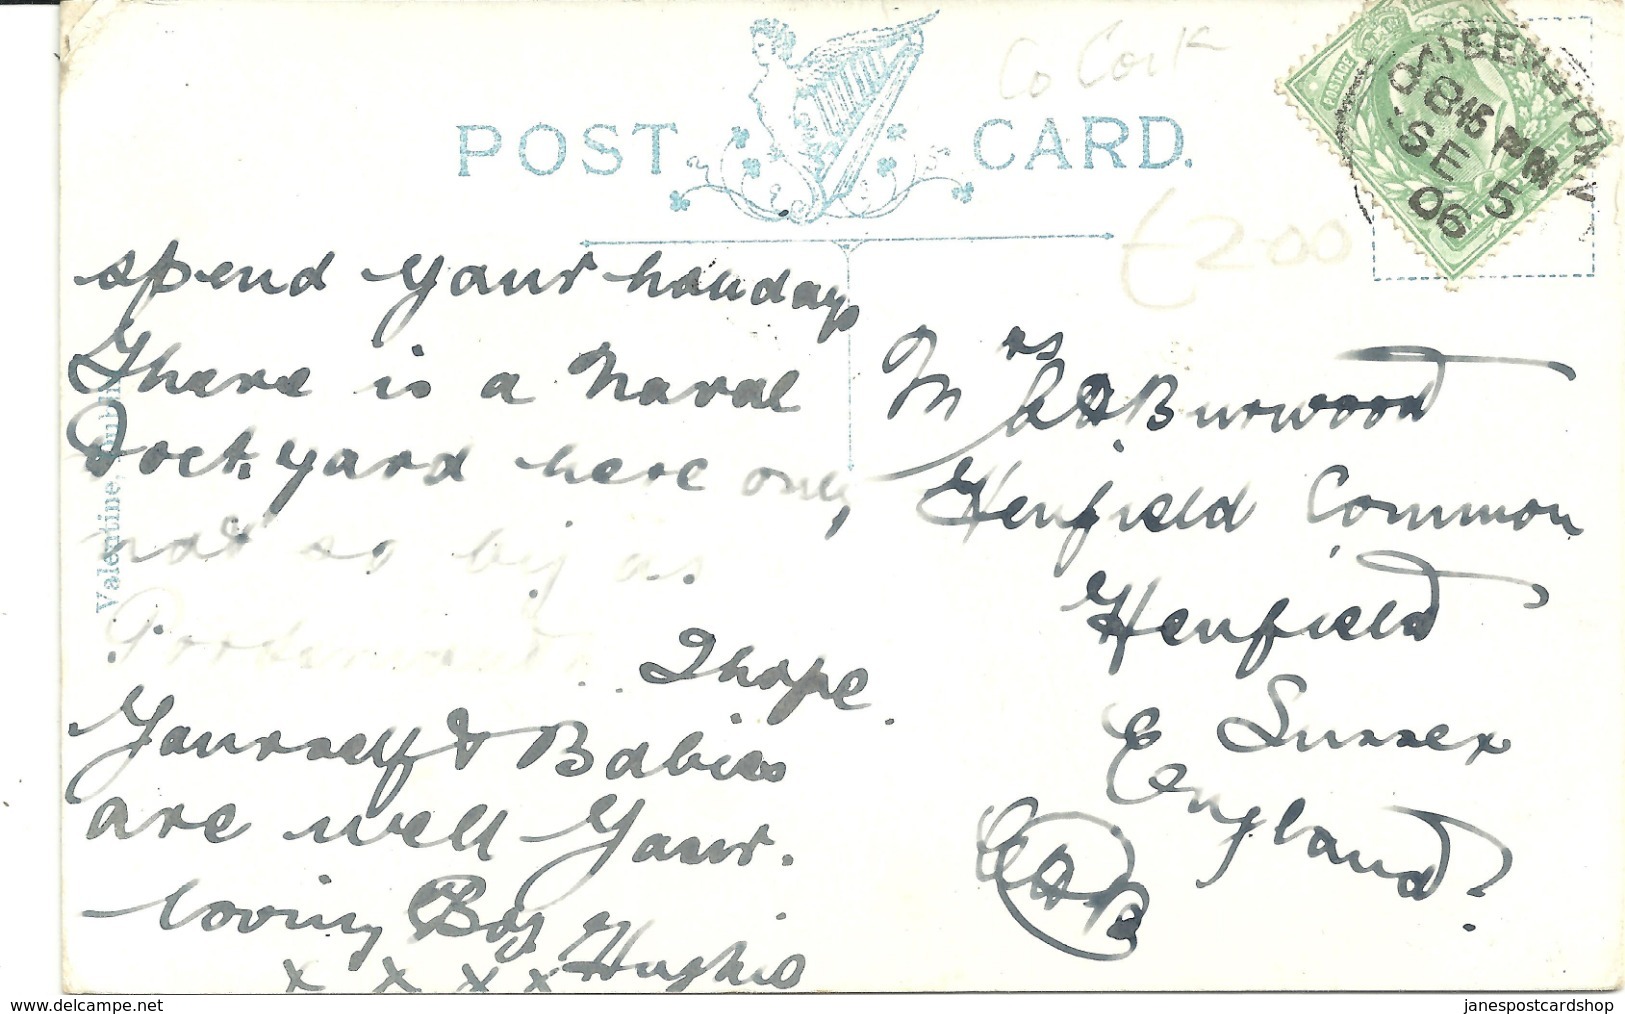 Co Cork
POST CARD.
QUEENSTOWN
8 45 PM
SE 5
06
POSTAGE
£2.00
spend your holiday
There is a Naval
Dockyard here only
not so big as
Portsmouth. I hope
Yourself & Babies
are well Your.
loving Boy
x x x x Hughie
Valentine,
Mrs A Burwood
Henfield Common
Henfield
Sussex
England
delcampe.net
janespostcardshop